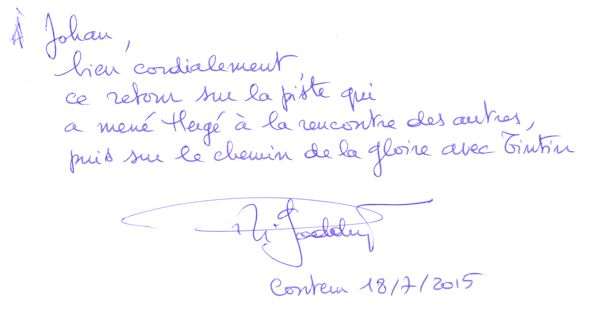 À Johan,
bien cordialement,
ce retour sur la piste qui
a mené Hergé à la rencontre des autres,
puis sur le chemin de la gloire avec Tintin
Ph. Goddin
Contern 18/7/2015